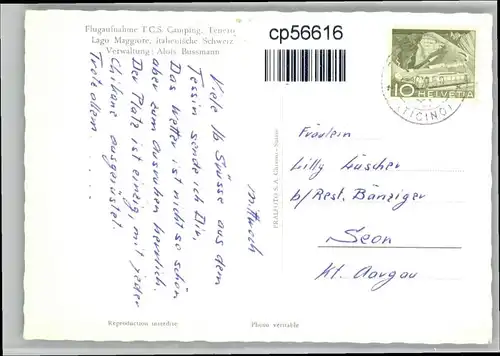 Flugaufnahme T.C.S. Camping, Tenero
Lago Maggiore, italienische Schweiz
Verwaltung: Alois Bussmann
cp56616
10 HELVETIA
(TICINO)
Mittwoch
Viele lb Grüsse aus dem
Tessin sende ich Dir.
Das Wetter ist nicht so schön
aber zum Ausruhen herrlich.
Der Platz ist einzig, mit jeder
Chikane ausgerüstet.
Trotz allem . . . . .
PRALFOTO S.A.
Fräulein
Lilly Lüscher
b/Rest. Bänziger
Seon
Kt. Aargau
Reproduction interdite
Photo véritable